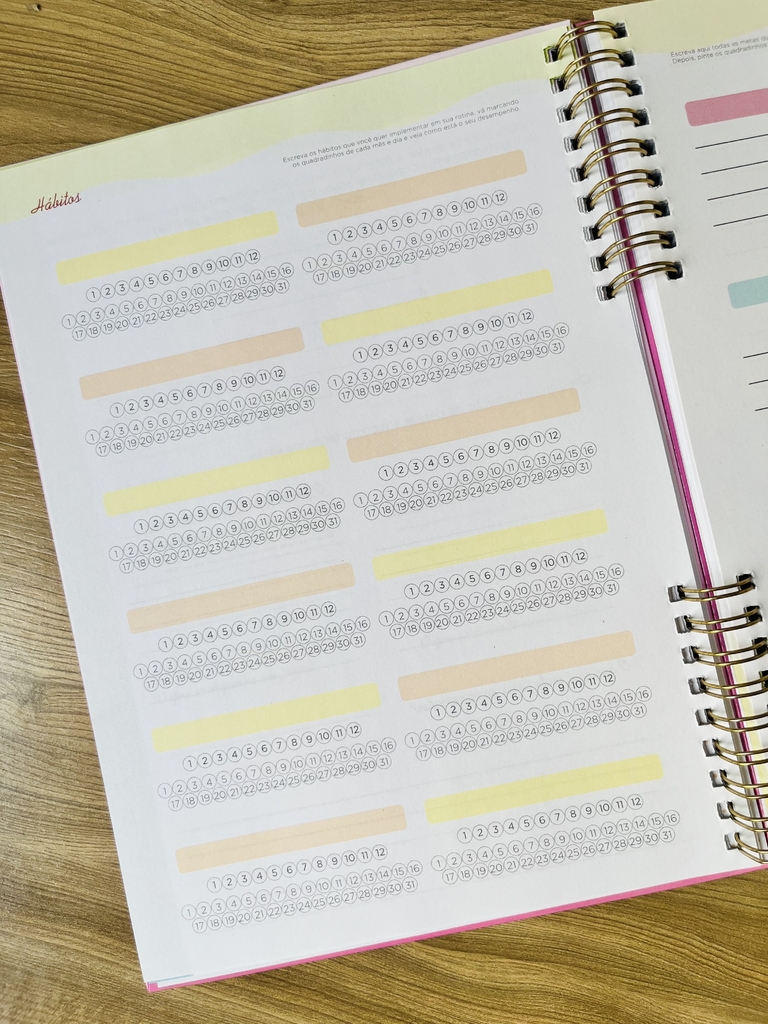 Escreva os hábitos que você quer implementar em sua rotina, vá marcando
os quadradinhos de cada mês e dia e veja como está o seu desempenho.
Hábitos
1 2 3 4 5 6 7 8 9 10 11 12
1 2 3 4 5 6 7 8 9 10 11 12 13 14 15 16
17 18 19 20 21 22 23 24 25 26 27 28 29 30 31
1 2 3 4 5 6 7 8 9 10 11 12
1 2 3 4 5 6 7 8 9 10 11 12 13 14 15 16
17 18 19 20 21 22 23 24 25 26 27 28 29 30 31
1 2 3 4 5 6 7 8 9 10 11 12
1 2 3 4 5 6 7 8 9 10 11 12 13 14 15 16
17 18 19 20 21 22 23 24 25 26 27 28 29 30 31
1 2 3 4 5 6 7 8 9 10 11 12
1 2 3 4 5 6 7 8 9 10 11 12 13 14 15 16
17 18 19 20 21 22 23 24 25 26 27 28 29 30 31
1 2 3 4 5 6 7 8 9 10 11 12
1 2 3 4 5 6 7 8 9 10 11 12 13 14 15 16
17 18 19 20 21 22 23 24 25 26 27 28 29 30 31
1 2 3 4 5 6 7 8 9 10 11 12
1 2 3 4 5 6 7 8 9 10 11 12 13 14 15 16
17 18 19 20 21 22 23 24 25 26 27 28 29 30 31
1 2 3 4 5 6 7 8 9 10 11 12
1 2 3 4 5 6 7 8 9 10 11 12 13 14 15 16
17 18 19 20 21 22 23 24 25 26 27 28 29 30 31
1 2 3 4 5 6 7 8 9 10 11 12
1 2 3 4 5 6 7 8 9 10 11 12 13 14 15 16
17 18 19 20 21 22 23 24 25 26 27 28 29 30 31
1 2 3 4 5 6 7 8 9 10 11 12
1 2 3 4 5 6 7 8 9 10 11 12 13 14 15 16
17 18 19 20 21 22 23 24 25 26 27 28 29 30 31
1 2 3 4 5 6 7 8 9 10 11 12
1 2 3 4 5 6 7 8 9 10 11 12 13 14 15 16
17 18 19 20 21 22 23 24 25 26 27 28 29 30 31
1 2 3 4 5 6 7 8 9 10 11 12
1 2 3 4 5 6 7 8 9 10 11 12 13 14 15 16
17 18 19 20 21 22 23 24 25 26 27 28 29 30 31
1 2 3 4 5 6 7 8 9 10 11 12
1 2 3 4 5 6 7 8 9 10 11 12 13 14 15 16
17 18 19 20 21 22 23 24 25 26 27 28 29 30 31
Escreva aqui todas as metas
Depois, pinte os quadradinhos